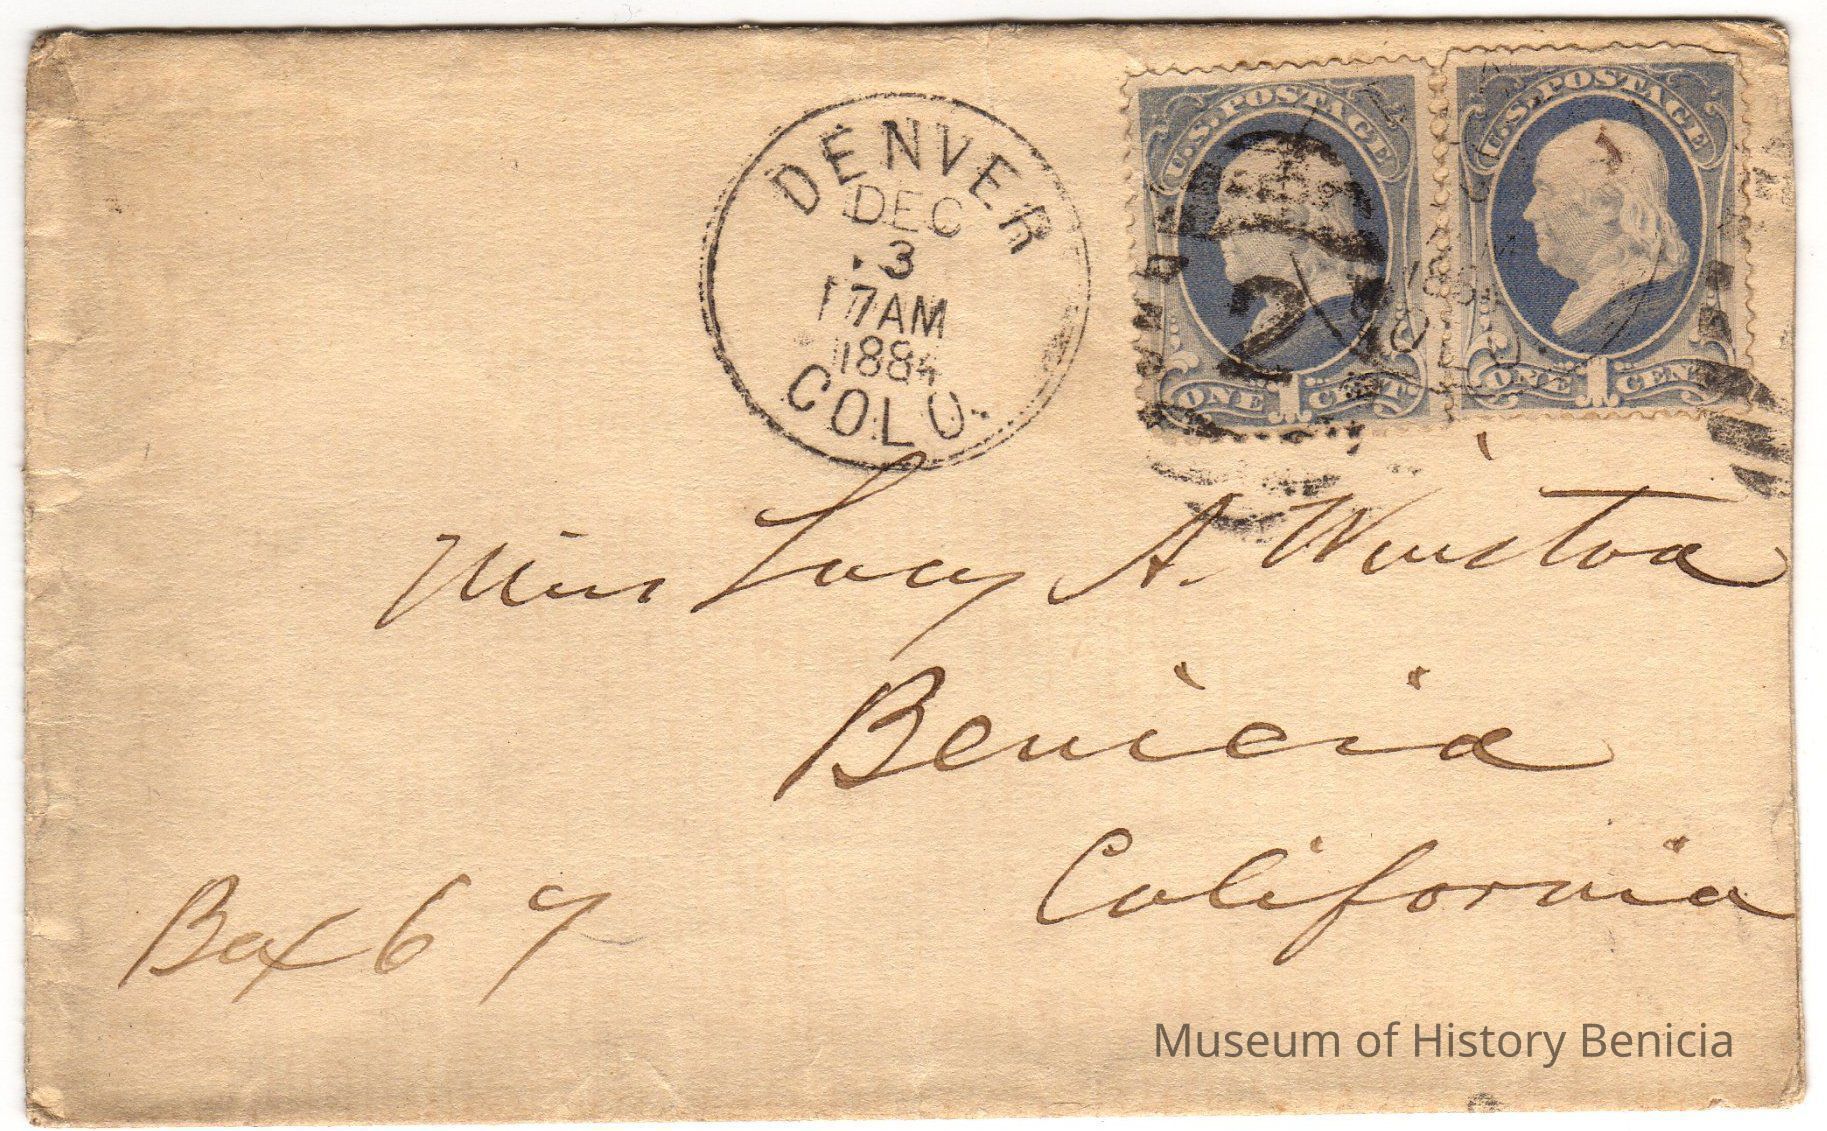 DENVER
DEC
3
7AM
1884
COLO.
U.S. POSTAGE
2
ONE 1 CENT
U.S. POSTAGE
ONE 1 CENT
Miss Lucy A. Winston
Benicia
California
Box 67
Museum of History Benicia